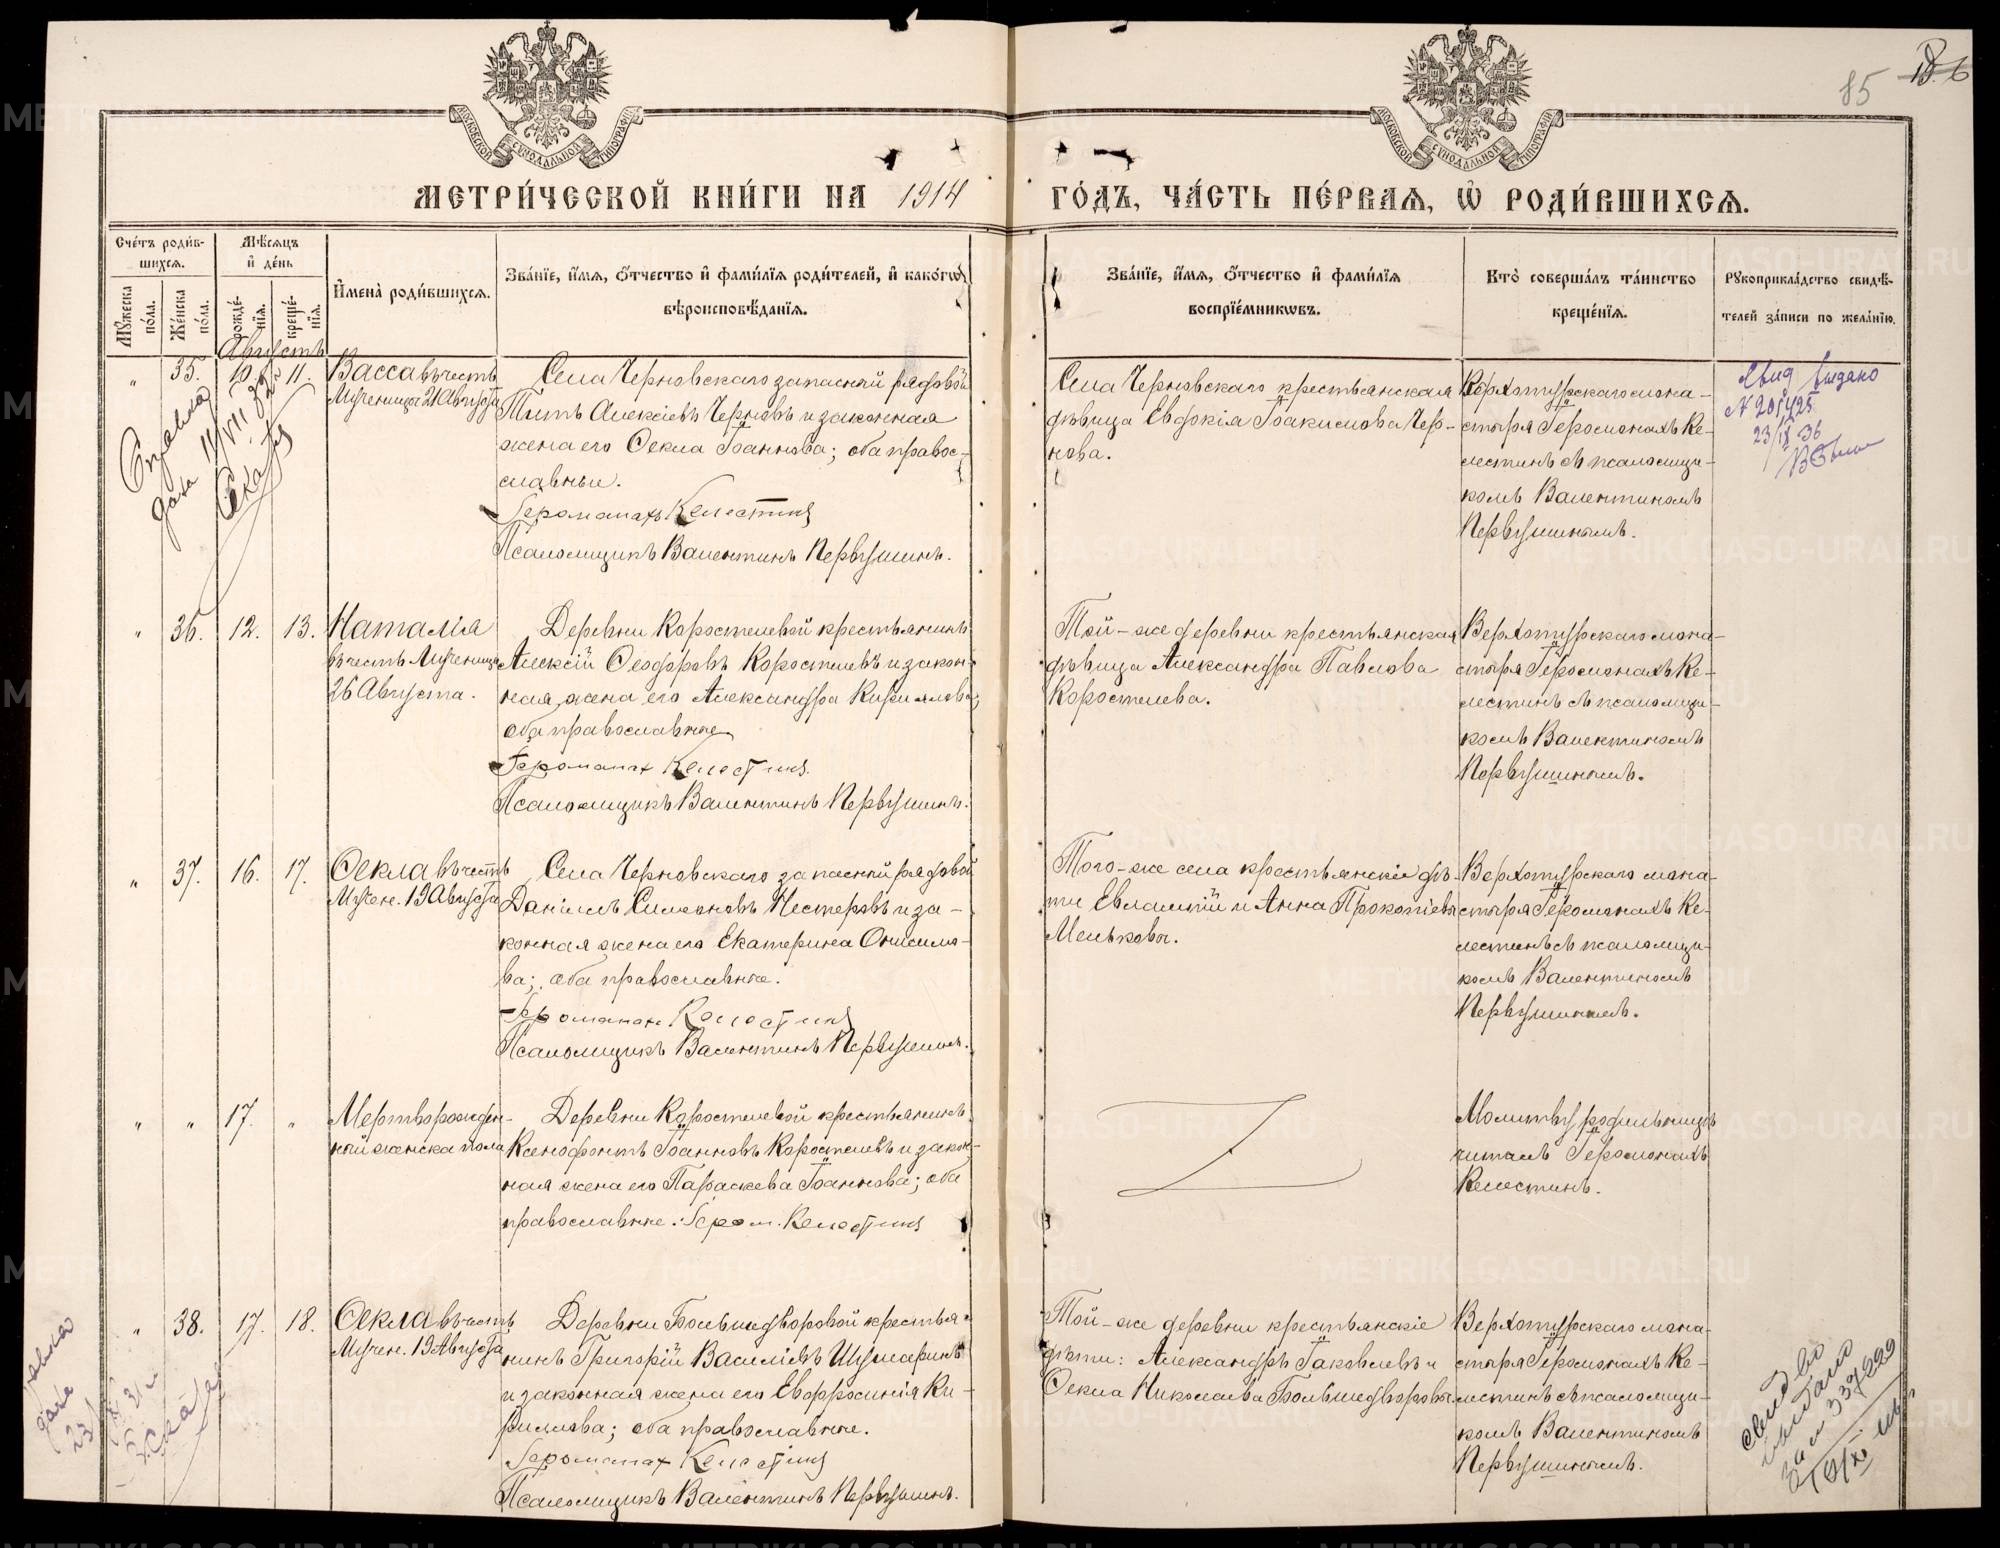 85
МОСКОВСКОЙ СУНОДАЛЬНОЙ ТИПОГРАФІИ
МОСКОВСКОЙ СУНОДАЛЬНОЙ ТИПОГРАФІИ
МЕТРИ́ЧЕСКОЙ КНИ́ГИ НА 1914 ГО́ДЪ, ЧА́СТЬ ПЕ́РВАЯ, Ѽ РОДИ́ВШИХСЯ.
Сче́тъ роди́в-
шихся.
Мѣ́сяцъ
и҆ де́нь
Му́жеска по́ла.
Же́нска по́ла.
рожде́-
нїя.
креще́-
нїя.
И҆мена̀ роди́вшихся.
Зва́нїе, и҆́мя, ѻ҆́тчество и҆ фами́лїя роди́телей, и҆ како́гѡ
вѣроисповѣ́данїя.
Зва́нїе, и҆́мя, ѻ҆́тчество и҆ фами́лїя
воспрїе́мникѡвъ.
Кто̀ соверша́лъ та́инство
креще́нїя.
Рꙋкоприкла́дство свидѣ́-
телей за́писи по жела́нїю.
Августъ
" 35. 10. 11.
Васса въ честь
Мученицы 21 Августа
Села Черновскаго запасный рядовой
Титъ Алексіевъ Черновъ и законная
жена его Ѳекла Іоаннова; оба правос-
славные.
Іеромонахъ Келестинъ
Псаломщикъ Валентинъ Первушинъ.
Села Черновскаго крестьянская
дѣвица Евдокія Іоакимова Чер-
нова.
Верхотурскаго мона-
стыря Іеромонахъ Ке-
лестинъ съ псаломщи-
комъ Валентиномъ
Первушинымъ.
Свид выдано
№ 201425
23/IX 36
Справка
дана 11/VII 32
" 36. 12. 13.
Наталія
въ честь Мученицы
26 Августа.
Деревни Коростелевой крестьянинъ
Алексій Ѳеодоровъ Коростелевъ и закон-
ная жена его Александра Кириллова;
оба православные
Іеромонах Келестинъ
Псаломщикъ Валентинъ Первушинъ.
Той-же деревни крестьянская
дѣвица Александра Павлова
Коростелева.
Верхотурскаго мона-
стыря Іеромонахъ Ке-
лестинъ съ псаломщи-
комъ Валентиномъ
Первушинымъ.
" 37. 16. 17.
Ѳекла въ честь
Мучен. 19 Августа
Села Черновскаго запасный рядовой
Даніилъ Симеоновъ Нестеровъ и за-
конная жена его Екатерина Онисимо-
ва; оба православные.
Іеромонах Келестинъ
Псаломщикъ Валентинъ Первушинъ.
Того-же села крестьянскіе дѣ-
ти Евлампій и Анна Прокопіевы
Меньковы.
Верхотурскаго мона-
стыря Іеромонахъ Ке-
лестинъ съ псаломщи-
комъ Валентиномъ
Первушинымъ.
" " 17. "
Мертворожден-
ный женска пола
Деревни Коростелевой крестьянинъ
Ксенофонтъ Іоанновъ Коростелевъ и закон-
ная жена его Параскева Іоаннова; оба
православные. Іером. Келестинъ
Молитву родильницѣ
читалъ Іеромонахъ
Келестинъ.
" 38. 17. 18.
Ѳекла въ честь
Мучен. 19 Августа
Деревни Большедворовой крестья-
нинъ Григорій Василіевъ Шумаринъ
и законная жена его Евфросинія Ки-
риллова; оба православные.
Іеромонах Келестинъ
Псаломщикъ Валентинъ Первушинъ.
Той-же деревни крестьянскіе
дѣти: Александръ Іаковлевъ и
Ѳекла Николаева Большедворовы.
Верхотурскаго мона-
стыря Іеромонахъ Ке-
лестинъ съ псаломщи-
комъ Валентиномъ
Первушинымъ.
METRIKI.GASO-URAL.RU